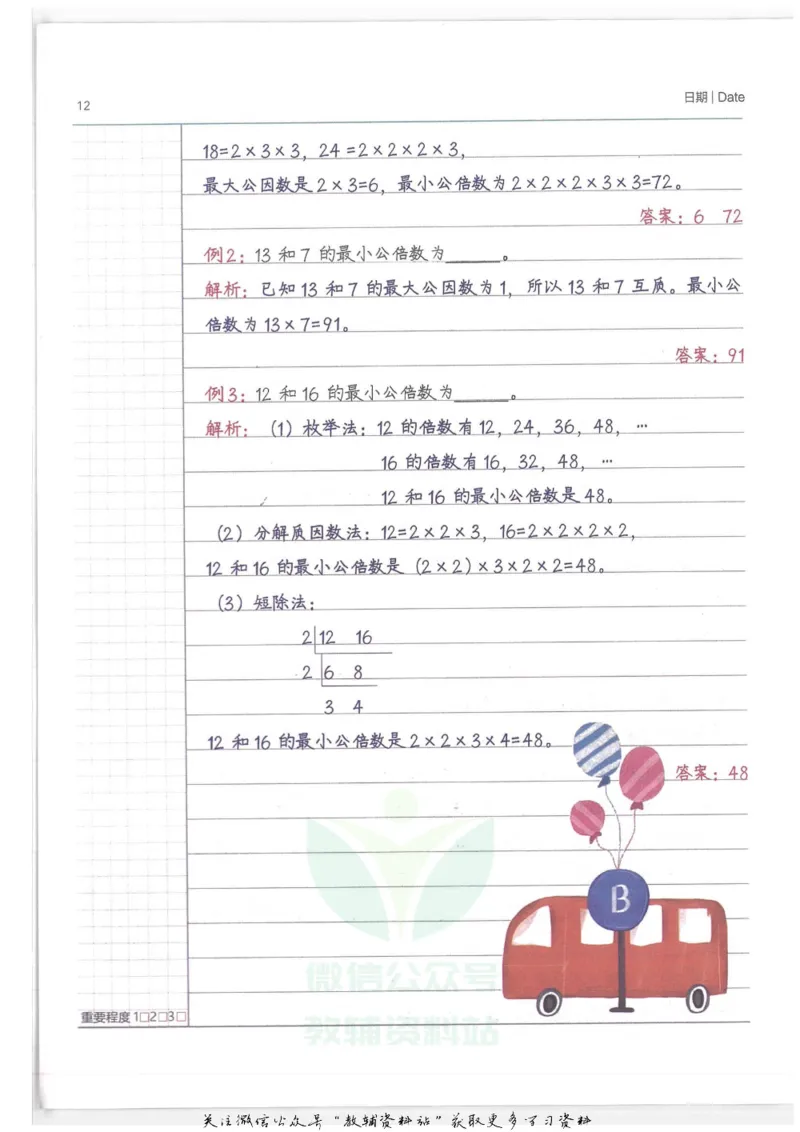 12
日期 | Date
18=2×3×3，24=2×2×2×3，
最大公因数是2×3=6，最小公倍数为2×2×2×3×3=72。
答案：6 72
例2：13和7的最小公倍数为______。
解析：已知13和7的最大公因数为1，所以13和7互质。最小公
倍数为13×7=91。
答案：91
例3：12和16的最小公倍数为______。
解析：（1）枚举法：12的倍数有12，24，36，48，…
16的倍数有16，32，48，…
12和16的最小公倍数是48。
（2）分解质因数法：12=2×2×3，16=2×2×2×2，
12和16的最小公倍数是（2×2）×3×2×2=48。
（3）短除法：
2 12 16
2 6 8
3 4
12和16的最小公倍数是2×2×3×4=48。
答案：48
B
微信公众号
教辅资料站
重要程度 1□2□3□
关注微信公众号“教辅资料站”获取更多学习资料